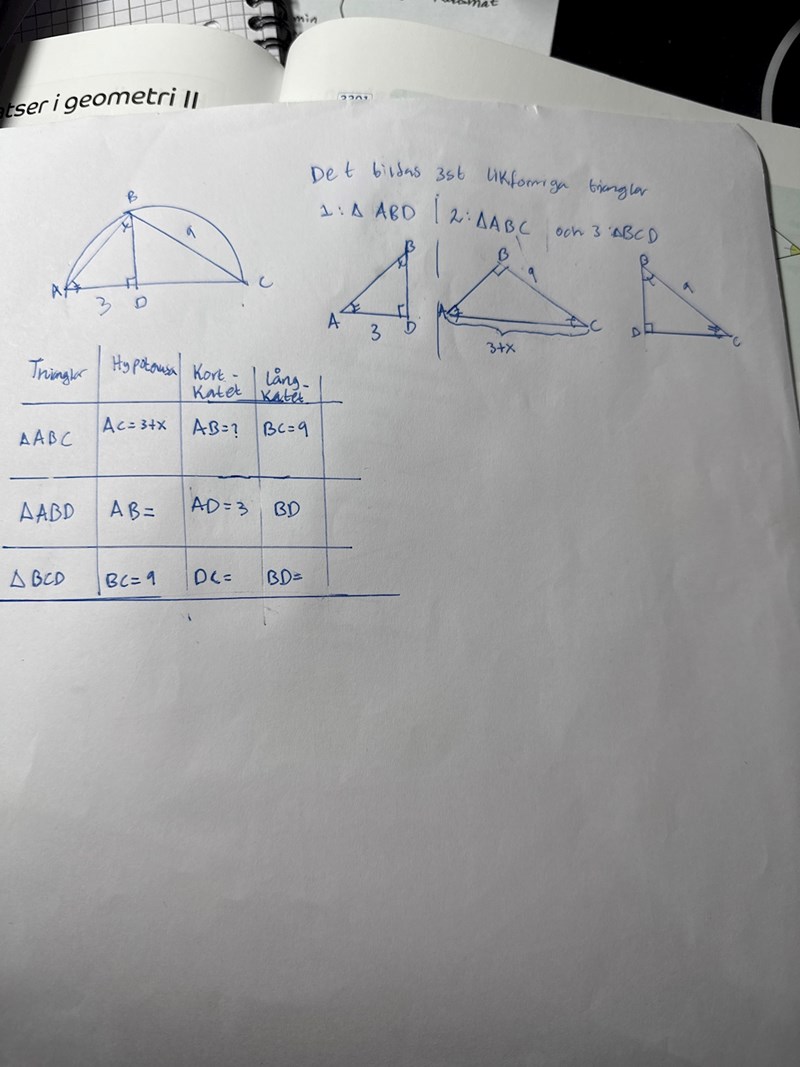 min
atser i geometri II
2201
Det bildas 3st likformiga trianglar
1: Δ ABD | 2: ΔABC | och 3: ΔBCD
B
A
3
D
9
C
B
A
3
D
B
9
A
C
3+x
B
9
D
C
Trianglar Hypotenusa Kort-Katet Lång-Katet
ΔABC AC=3+x AB=? BC=9
ΔABD AB= AD=3 BD
ΔBCD BC=9 DC= BD=